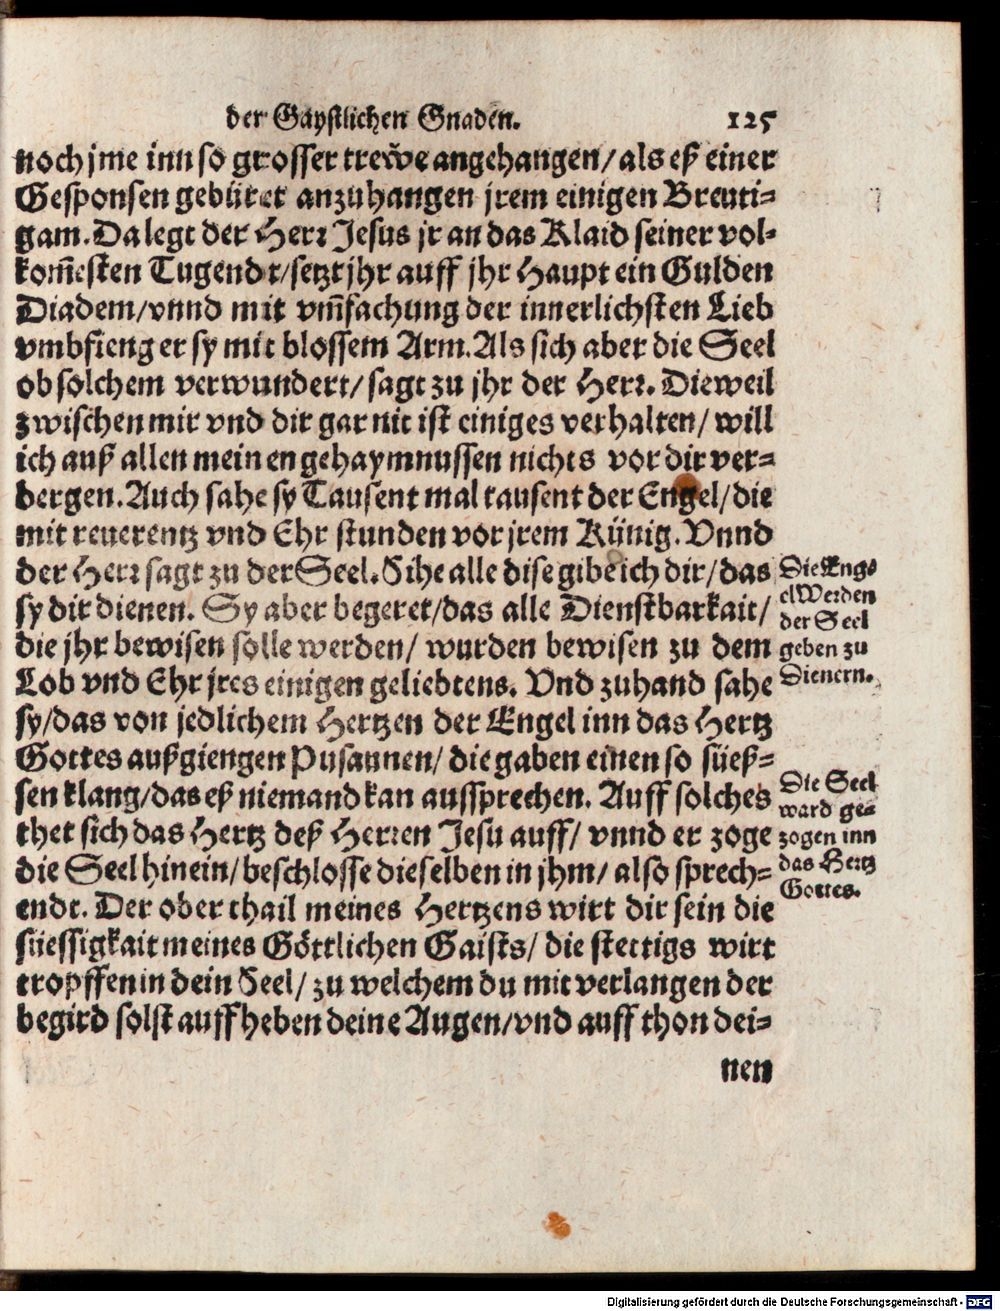 der Gaystlichen Gnaden. 125
noch jme inn so grosser treẅe angehangen/ als eß einer
Gesponsen gebüret anzuhangen jrem einigen Breuti-
gam. Da legt der Herr Jesus jr an das Klaid seiner vol-
kom̃esten Tugendt/ setzt jhr auff jhr Haupt ein Gulden
Diadem/ vnnd mit vm̃fachung der innerlichsten Lieb
vmbfieng er sy mit blossem Arm. Als sich aber die Seel
ob solchem verwundert/ sagt zu jhr der Herr. Dieweil
zwischen mir vnd dir gar nit ist einiges verhalten/ will
ich auß allen meinen gehaymnussen nichts vor dir ver-
bergen. Auch sahe sy Tausent mal tausent der Engel/ die
mit reuerentz vnd Ehr stunden vor jrem Künig. Vnnd
der Herr sagt zu der Seel. Sihe alle dise gibe ich dir/ das
sy dir dienen. Sy aber begeret/ das alle Dienstbarkait/
die jhr bewisen solle werden/ wurden bewisen zu dem
Lob vnd Ehr jres einigen geliebtens. Vnd zuhand sahe
sy/ das von jedlichem Hertzen der Engel inn das Hertz
Gottes außgiengen Pusaunen/ die gaben einen so süeß-
sen klang/ das eß niemand kan aussprechen. Auff solches
thet sich das Hertz deß Herren Jesu auff/ vnnd er zoge
die Seel hinein/ beschlosse dieselben in jhm/ also sprech-
endt. Der ober thail meines Hertzens wirt dir sein die
süessigkait meines Göttlichen Gaists/ die stettigs wirt
tropffen in dein Seel/ zu welchem du mit verlangen der
begird solst auffheben deine Augen/ vnd auff thon dei-
nen
Die Eng-
el Werden
der Seel
geben zu
Dienern.
Die Seel
ward ge-
zogen inn
das Hertz
Gottes.
Digitalisierung gefördert durch die Deutsche Forschungsgemeinschaft - DFG